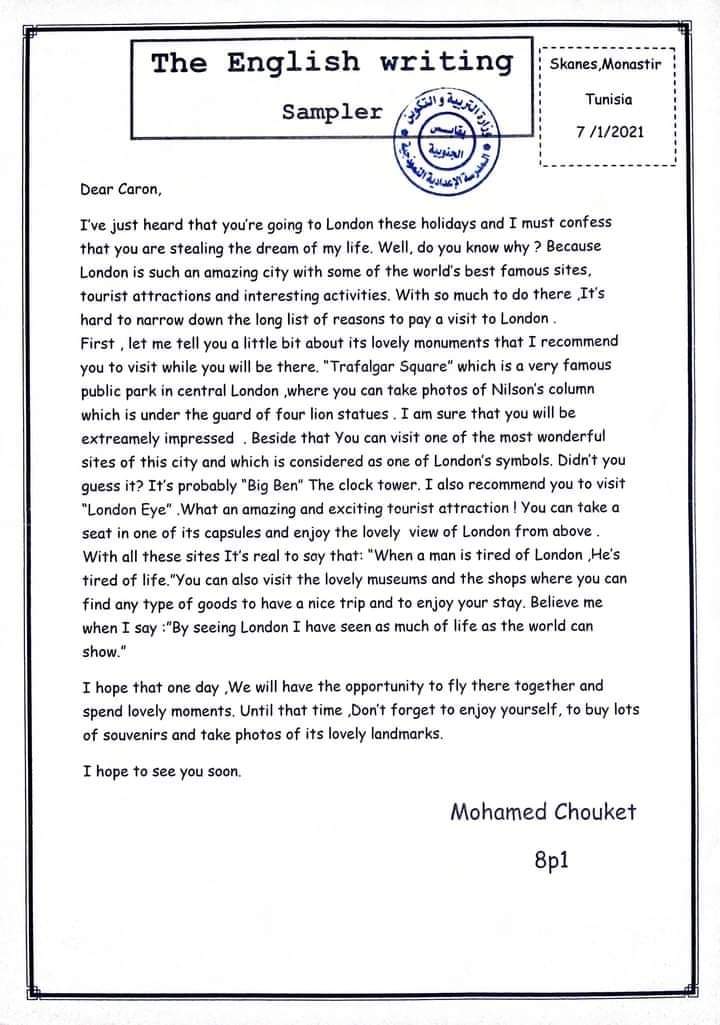 The English writing
Sampler
Skanes,Monastir
Tunisia
7 /1/2021
وزارة التربية والتكوين
بقابس
الجنوبية
المدرسة الإعدادية النموذجية
Dear Caron,
I've just heard that you're going to London these holidays and I must confess
that you are stealing the dream of my life. Well, do you know why ? Because
London is such an amazing city with some of the world's best famous sites,
tourist attractions and interesting activities. With so much to do there ,It's
hard to narrow down the long list of reasons to pay a visit to London .
First , let me tell you a little bit about its lovely monuments that I recommend
you to visit while you will be there. "Trafalgar Square" which is a very famous
public park in central London ,where you can take photos of Nilson's column
which is under the guard of four lion statues . I am sure that you will be
extreamely impressed . Beside that You can visit one of the most wonderful
sites of this city and which is considered as one of London's symbols. Didn't you
guess it? It's probably "Big Ben" The clock tower. I also recommend you to visit
"London Eye" .What an amazing and exciting tourist attraction ! You can take a
seat in one of its capsules and enjoy the lovely view of London from above .
With all these sites It's real to say that: "When a man is tired of London ,He's
tired of life."You can also visit the lovely museums and the shops where you can
find any type of goods to have a nice trip and to enjoy your stay. Believe me
when I say :"By seeing London I have seen as much of life as the world can
show."
I hope that one day ,We will have the opportunity to fly there together and
spend lovely moments. Until that time ,Don't forget to enjoy yourself, to buy lots
of souvenirs and take photos of its lovely landmarks.
I hope to see you soon.
Mohamed Chouket
8p1